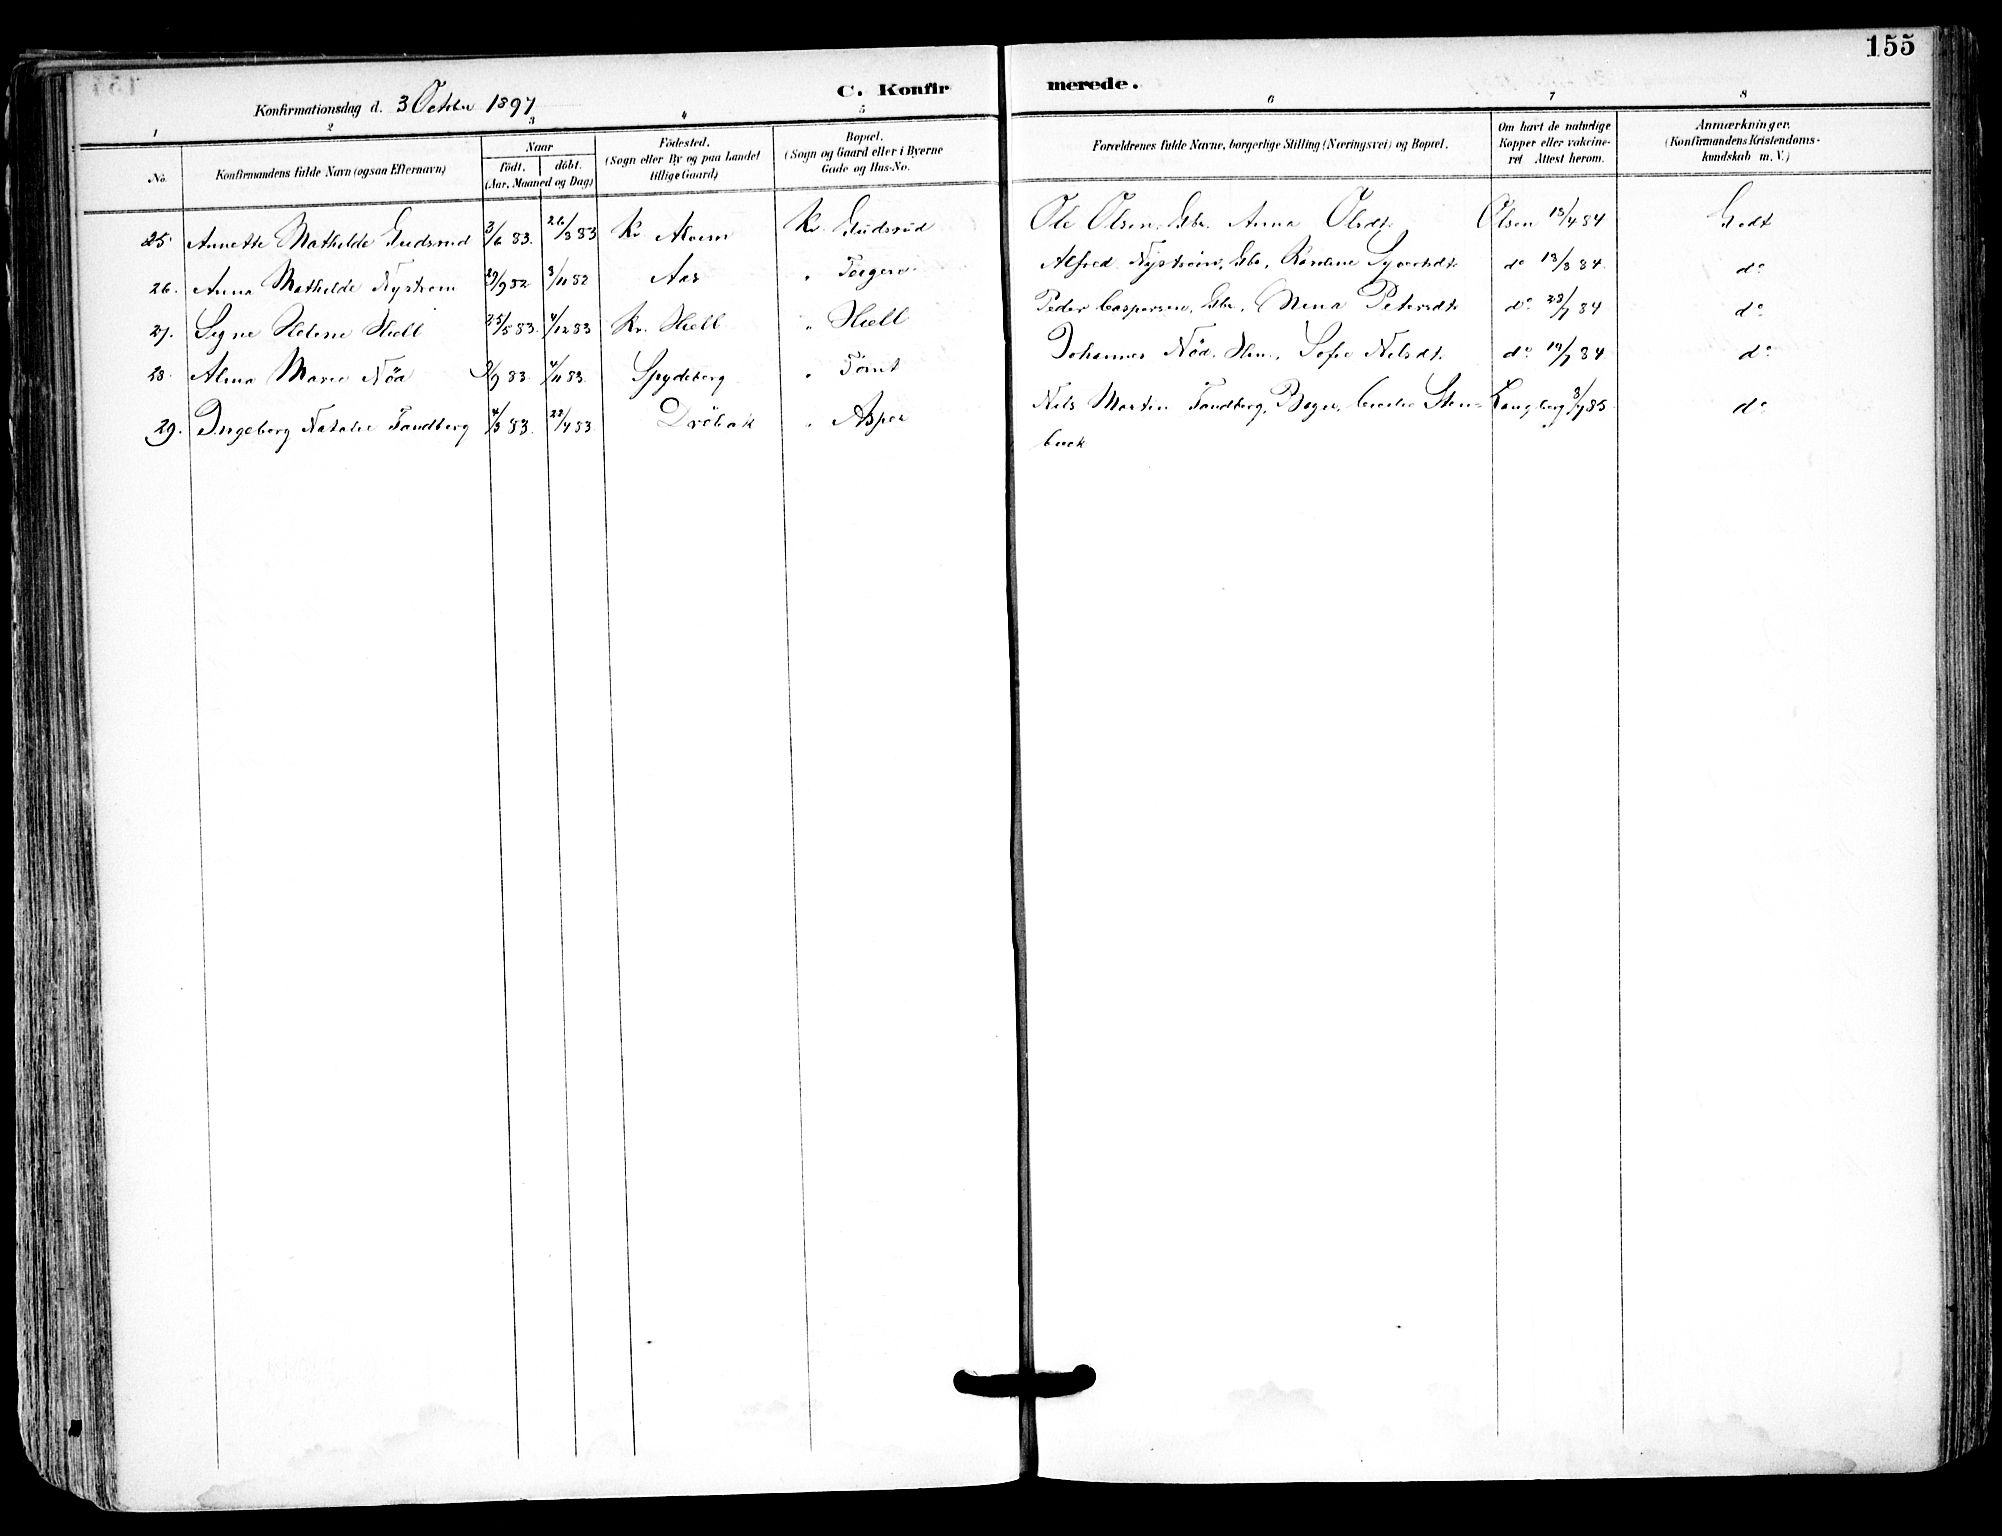 155
C. Konfirmerede.
Konfirmationsdag d. 3 October 1897
1 2 3 4 5 6 7 8
No. Konfirmandens fulde Navn (ogsaa Efternavn) Naar født. døbt. (Aar, Maaned og Dag) Fødested. (Sogn eller By og paa Landet tillige Gaard) Bopæl. (Sogn og Gaard eller i Byerne Gade og Hus-No. Forældrenes fulde Navne, borgerlige Stilling (Næringsvei) og Bopæl. Om havt de naturlige Kopper eller vakcineret Attest herom. Anmærkninger. (Konfirmandens Kristendomskundskab m. V.)
25. Annette Mathilde Gudsrud 3/6 83. 26/8 83 Kr. Kr. Gudsrud Ole Olsen, Gbr. Anna Olsdt. Olsen 18/4 84 Godt
26. Anna Mathilde Nystrøm 29/9 82 3/11 82 Aas " Alfred Nystrøm, Gbr. Karoline Syvertsdt. do 13/3 84. do
27. Signe Helene Kjell 25/5 83. 4/12 83 Kr. Kjell " Kjell Peder Caspersen, Gbr. Mina Petersdt. do 23/7 84 do
28. Alma Marie Nød 9/9 83. 4/11 83. Spydeberg " Tomt Johannes Nød, Sofie Nilsdt. do 19/7 84 do
29. Ingeborg Natalie Tandberg 4/3 83. 22/4 83. Drøbak " Asper Nils Martin Tandberg, Bager, Cecilie Stenbuck Langberg 3/7 85. do